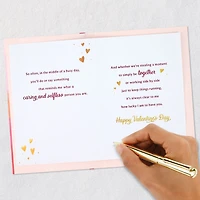 So often, in the middle of a busy day,
you'll do or say something
that reminds me what a
caring and selfless person you are.
And whether we're stealing a moment
to simply be together
or working side by side
just to keep things running,
it's always clear to me
how lucky I am to have you.
Happy Valentine's Day